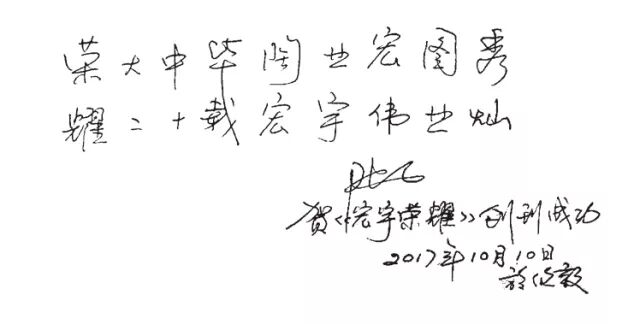 荣大中华陶业宏图秀
耀二十载宏宇伟业灿
贺《宏宇荣耀》创刊成功
2017年10月10日